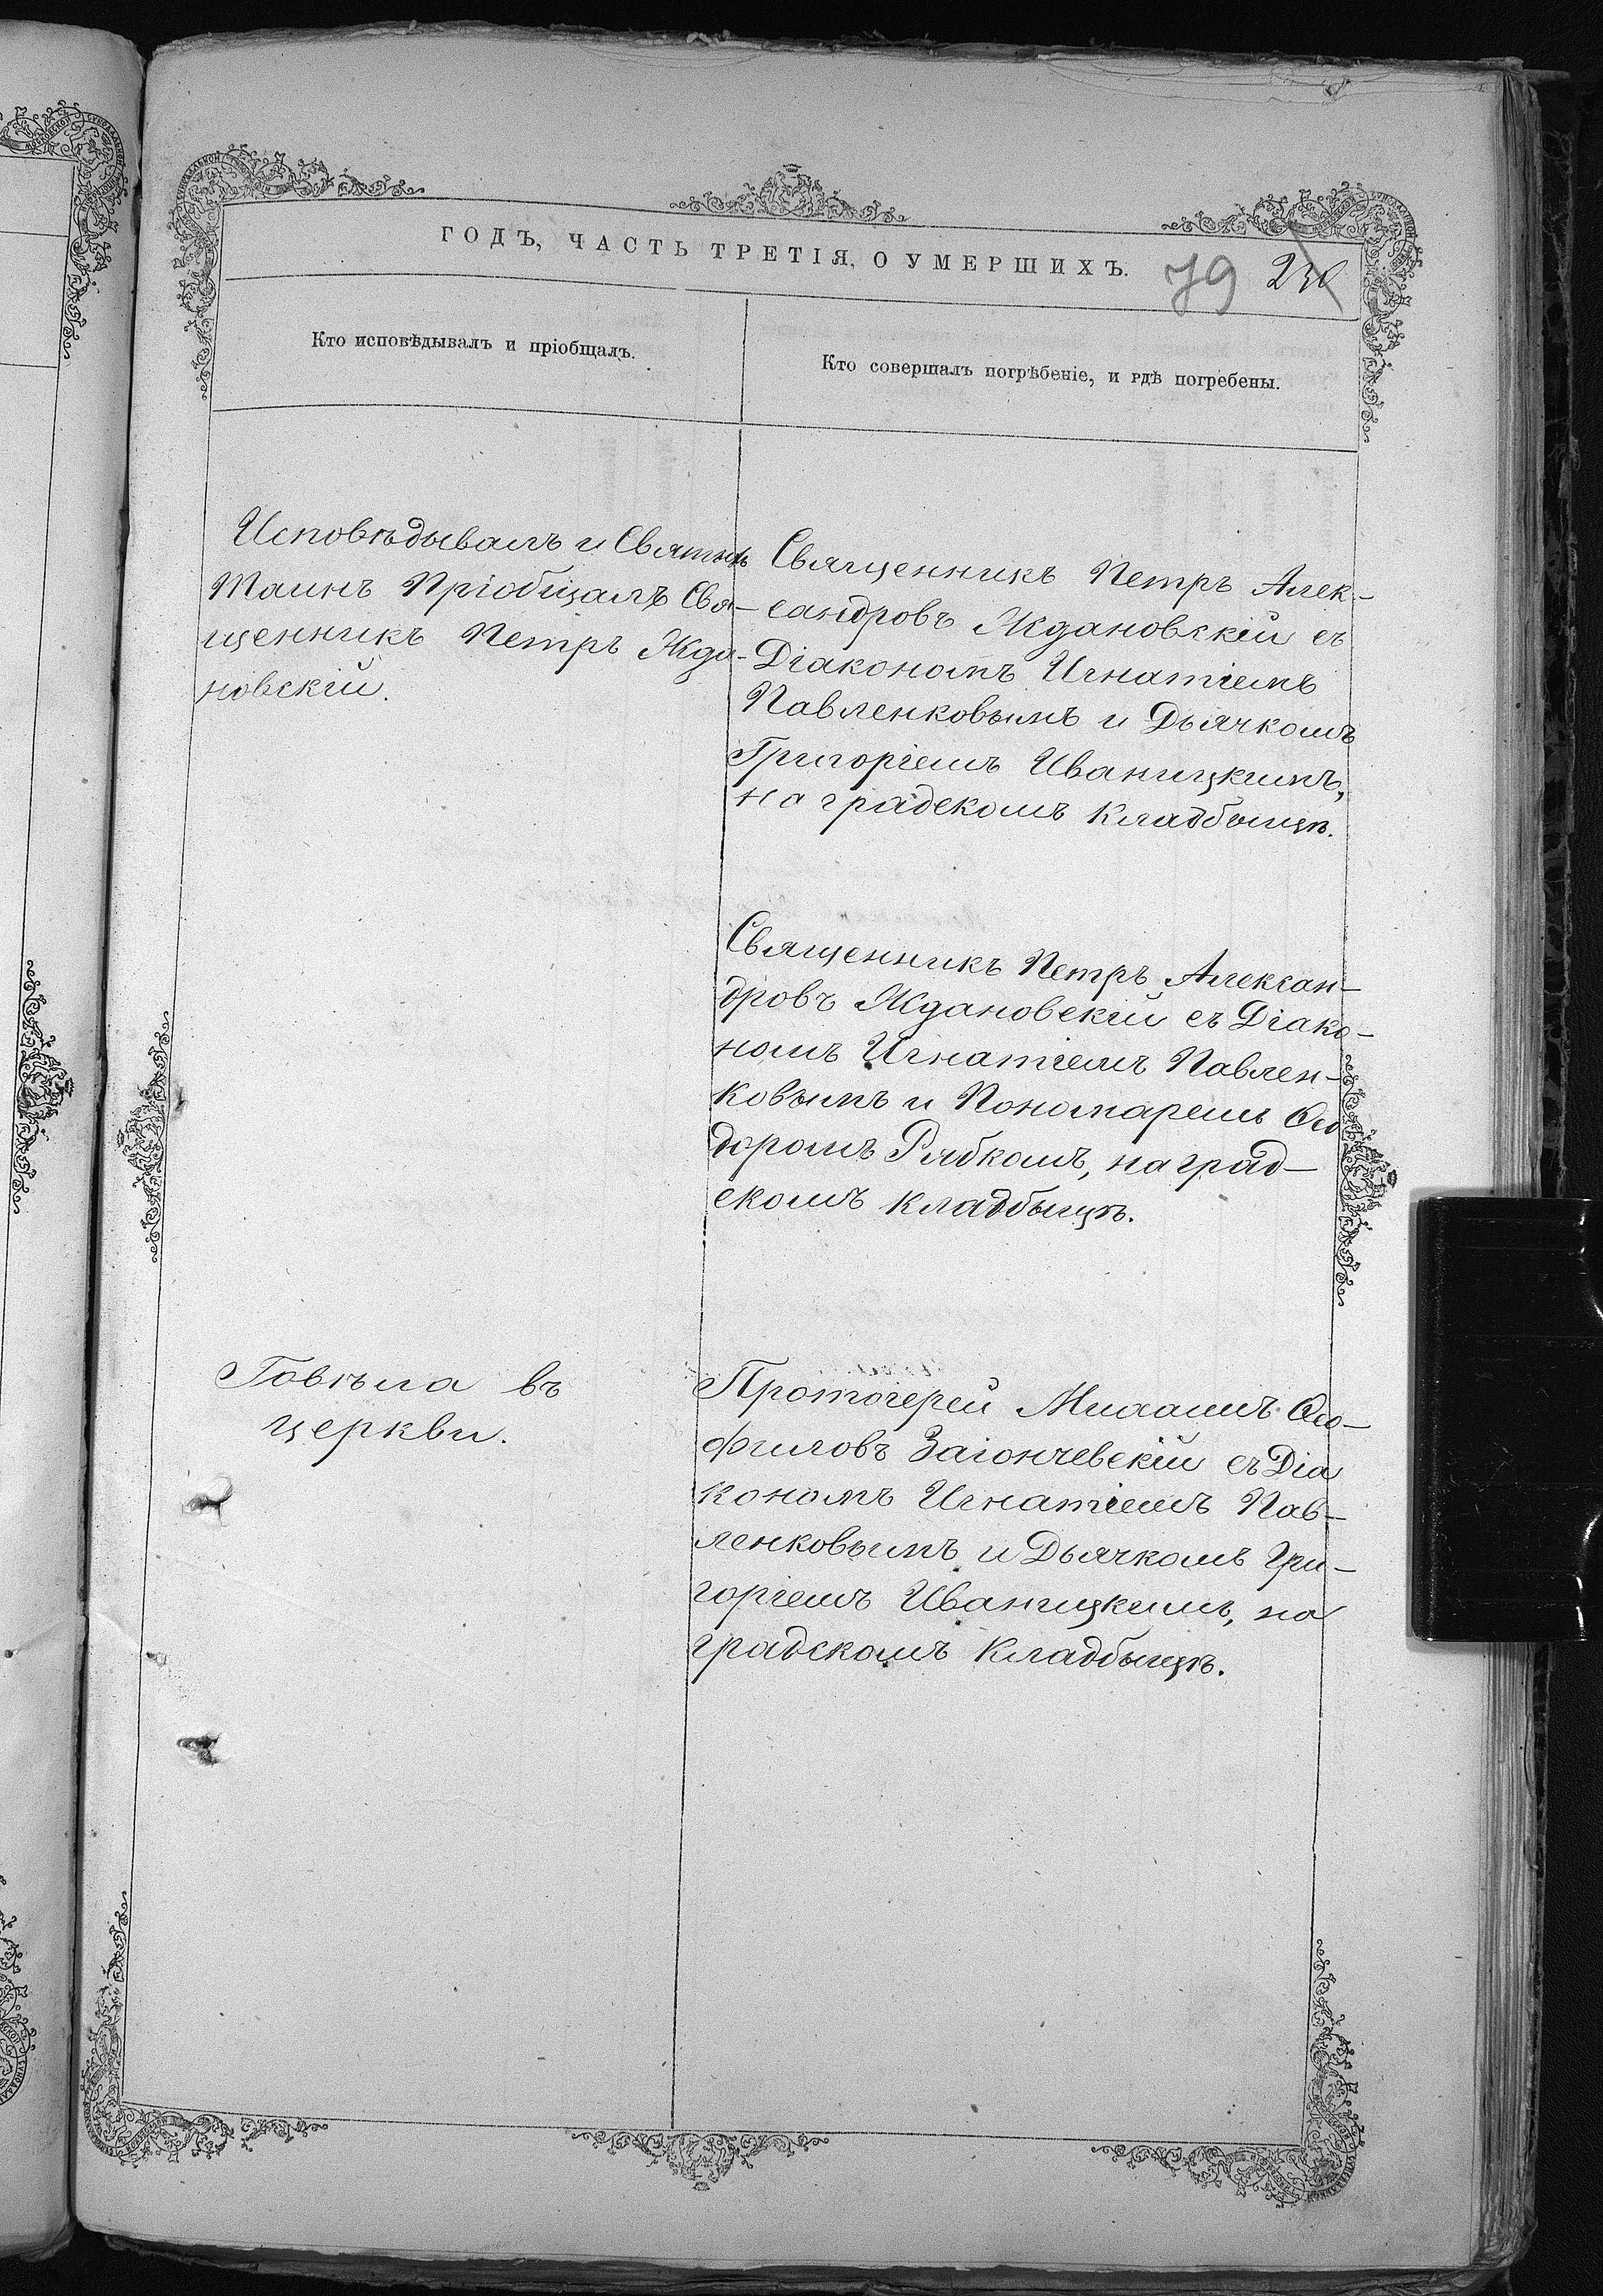 ГОДЪ, ЧАСТЬ ТРЕТІЯ, О УМЕРШИХЪ.
79 230
Кто исповѣдывалъ и пріобщалъ.
Кто совершалъ погрѣбеніе, и гдѣ погребены.
Исповѣдывалъ и Святыхъ
Таинъ Пріобщалъ Свя-
щенникъ Петръ Жда-
новскій.
Священникъ Петръ Алек-
сандровъ Ждановскій съ
Діакономъ Игнатіемъ
Павленковымъ и Дьячкомъ
Григоріемъ Иваницкимъ,
на градскомъ кладбыщѣ.
Священникъ Петръ Алексан-
дровъ Ждановскій съ Діако-
номъ Игнатіемъ Павлен-
ковымъ и Пономаремъ Ѳео
доромъ Рябкомъ, на град-
скомъ кладбыщѣ.
Говѣла въ
церкви.
Протоіерей Ѳео-
филовъ Заіончевскій съ Діа
кономъ Игнатіемъ Пав-
ленковымъ и Дьячкомъ Гри-
горіемъ Иваницкимъ, на
градскомъ кладбыщѣ.